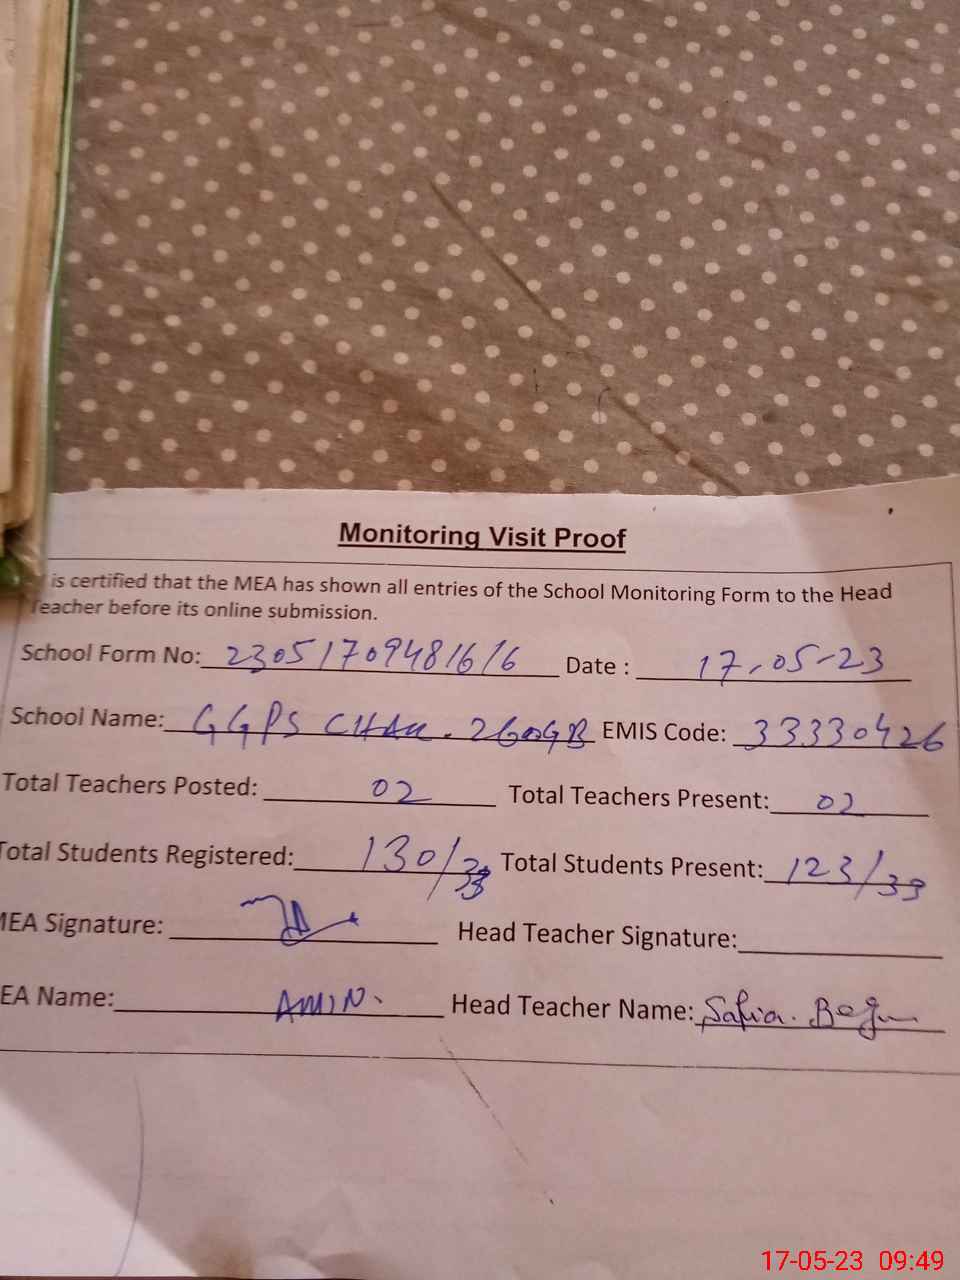 Monitoring Visit Proof
is certified that the MEA has shown all entries of the School Monitoring Form to the Head
Teacher before its online submission.
School Form No: 23051709481616 Date : 17-05-23
School Name: GGPS CHAK. GB EMIS Code: 33330426
Total Teachers Posted: 02 Total Teachers Present: 02
Total Students Registered: 130/33 Total Students Present: 123/33
MEA Signature: Head Teacher Signature:
EA Name: AMIN. Head Teacher Name: Safia. Begum
17-05-23 09:49